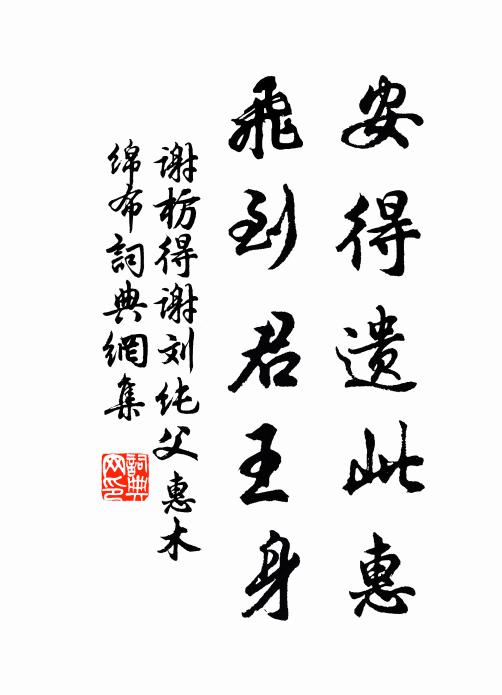 安得遗此惠
飛到君王身
谢枋得谢刘纯父惠木
绵布詞典網集
詞典网印